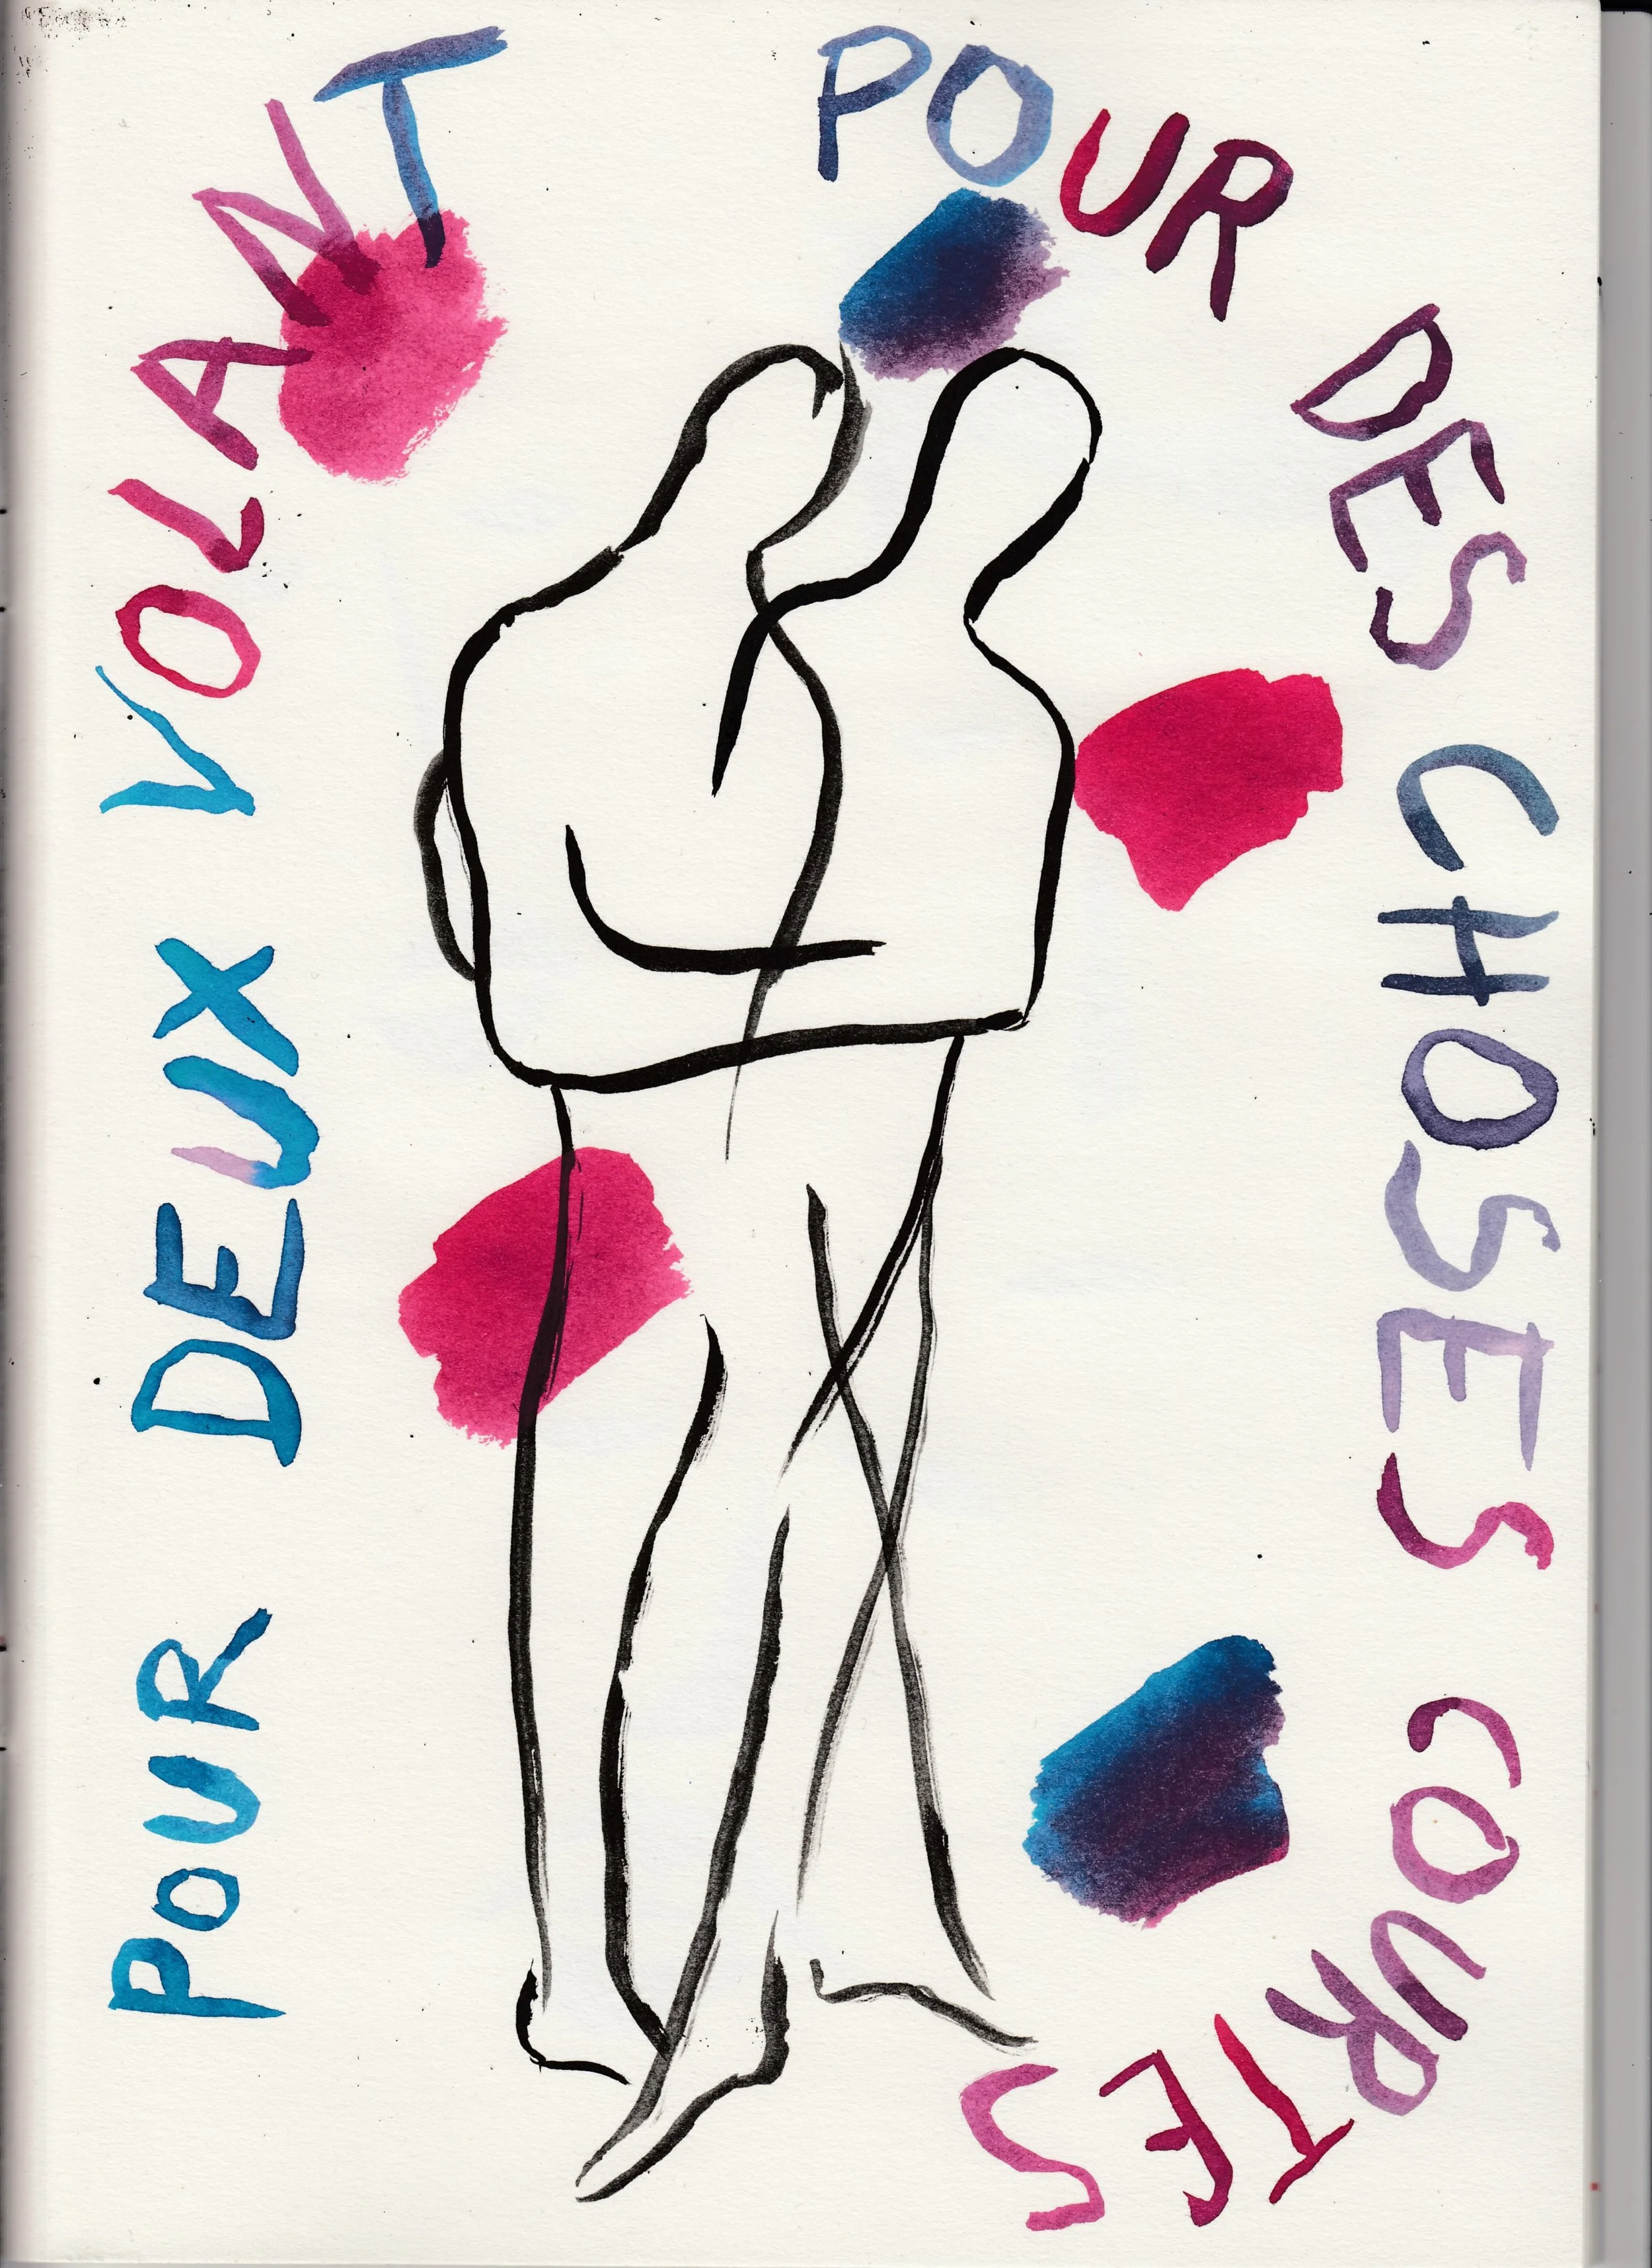 POUR DEUX VOLANT
POUR DES CHOSES COURTES